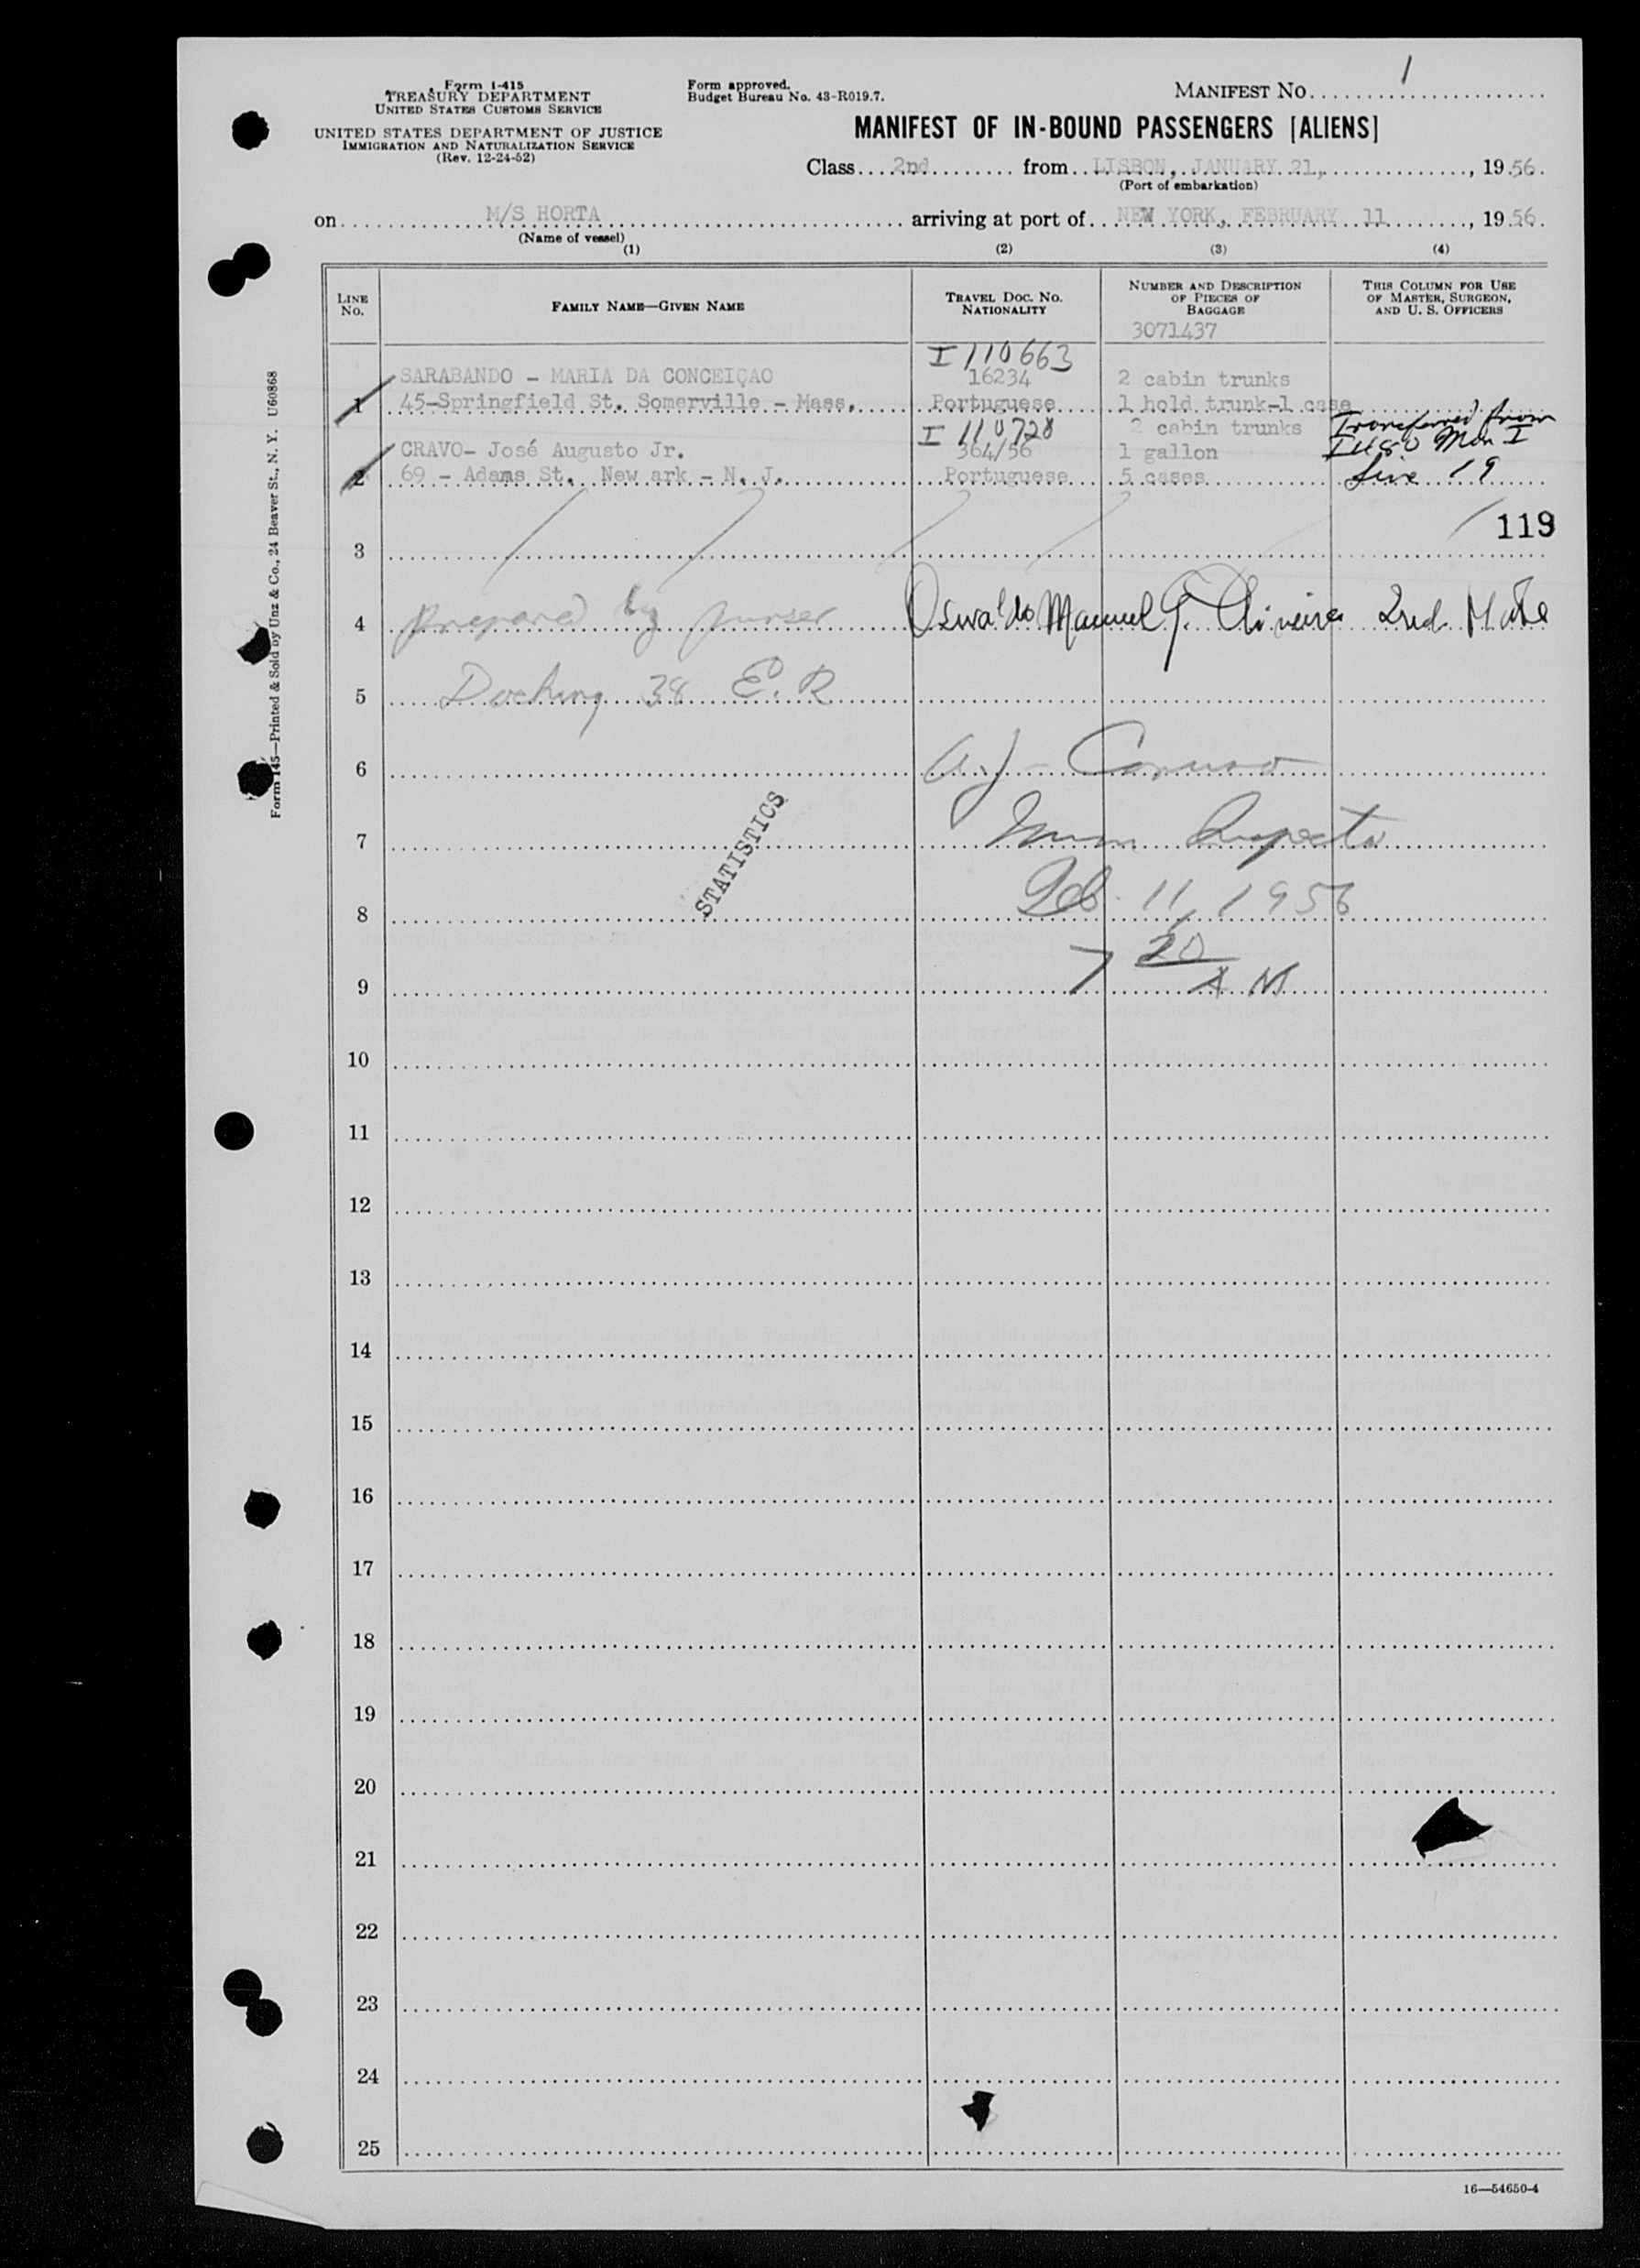 Form I-415
TREASURY DEPARTMENT
UNITED STATES CUSTOMS SERVICE
UNITED STATES DEPARTMENT OF JUSTICE
IMMIGRATION AND NATURALIZATION SERVICE
(Rev. 12-24-52)
Form approved.
Budget Bureau No. 43-R019.7.
MANIFEST NO. 1
MANIFEST OF IN-BOUND PASSENGERS [ALIENS]
Class 2nd from LISBON, JANUARY 21, , 19 56.
(Port of embarkation)
on M/S HORTA arriving at port of NEW YORK, FEBRUARY 11 , 19 56.
(Name of vessel)
(1) (2) (3) (4)
LINE NO. FAMILY NAME—GIVEN NAME TRAVEL DOC. NO. NATIONALITY NUMBER AND DESCRIPTION OF PIECES OF BAGGAGE THIS COLUMN FOR USE OF MASTER, SURGEON, AND U. S. OFFICERS
3071437
I 110663
SARABANDO - MARIA DA CONCEIÇAO 16234 2 cabin trunks
1 45-Springfield St. Somerville - Mass. Portuguese 1 hold trunk-1 case
I 110728 2 cabin trunks Transferred from
CRAVO- José Augusto Jr. 364/56 1 gallon Man I
2 69 - Adams St. New ark - N. J. Portuguese 5 cases line 19
119
3
4 prepared by purser Oswaldo Manuel Oliveira 2nd Mate
5 Docking 38 E. R
6 A.J. Caruso
7 Imm Inspector
STATISTICS
8 Feb 11, 1956
9 7 20 AM
10
11
12
13
14
15
16
17
18
19
20
21
22
23
24
25
16—54650-4
Form 145—Printed & Sold by Unz & Co., 24 Beaver St., N. Y. U60868